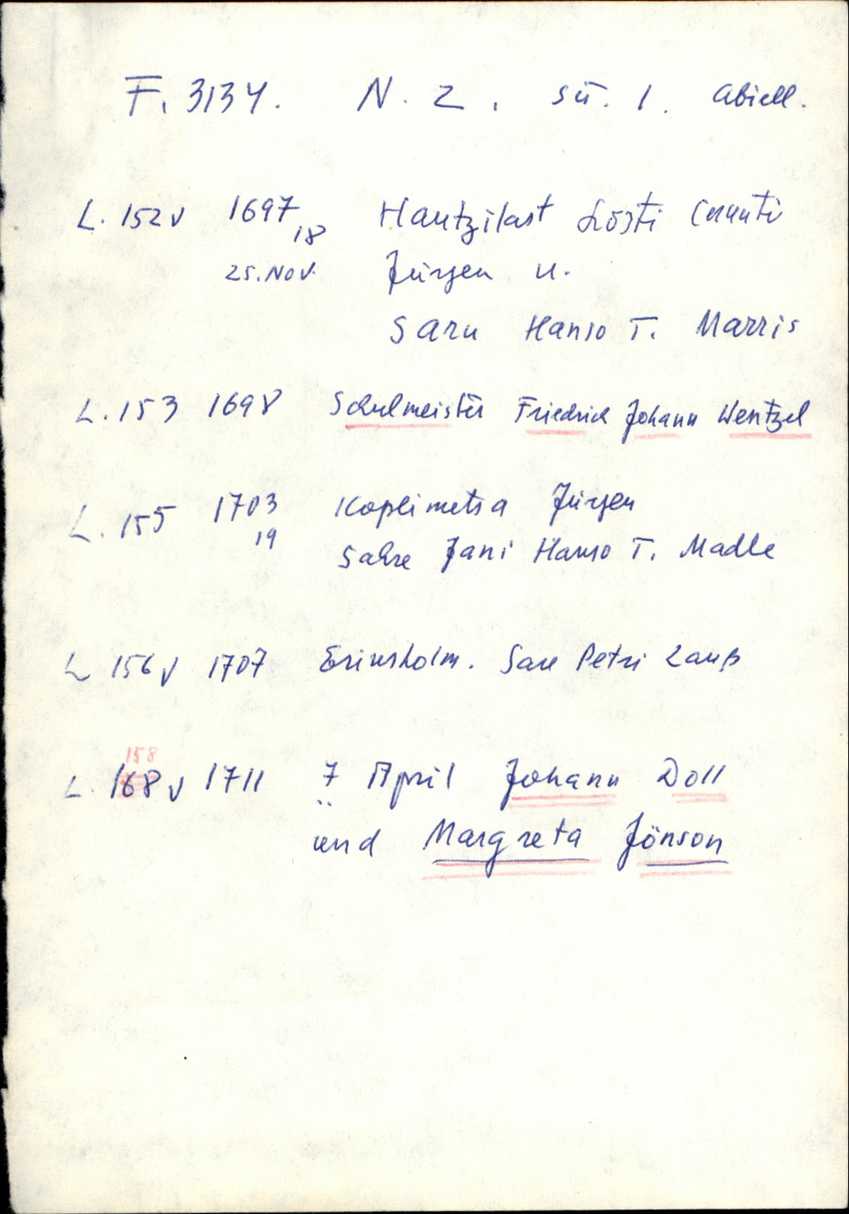 F. 3134. N. 2. sü. 1. abiell.
L. 152v 1697 18 Hantzilast Lösti
25. Nov. Jürgen u.
Saru Hanso T. Marris
L. 153 1698 Schulmeister Friedrich Johann Wentzel
L. 155 1703 Koplimetsa Jürgen
19 Sahre Jani Hanso T. Madle
L 156v 1707 Sare Petri Lauß
158
L. 168v 1711 7 April Johann Doll
und Margreta Jönson